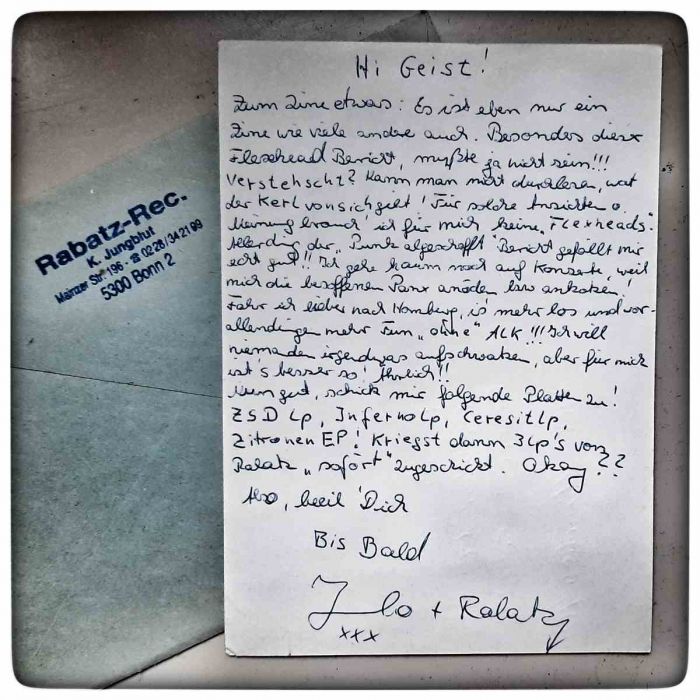 Rabatz-Rec.
K. Jungblut
Mainzer Str. 196 · ☎ 0228/342199
5300 Bonn 2
Hi Geist!
Zum Zine etwas: Es ist eben nur ein
Zine wie viele andere auch. Besondes dieser
Flexhead Bericht, mußte ja nicht sein!!!
Verstehscht? Kann man nicht durchlesen, wat
der Kerl von sich gibt! Für solche Ansichten o.
Meinung brauch' ich für mich keine „Flexheads".
Allerding der „Punk abgeschafft" Bericht gefällt mir
echt gut!! Ich gehe kaum noch auf Konzerte, weil
mich die besoffenen Punx anöden bzw ankotzen!
Fahr ich lieber nach Homburg, is' mehr los und vor-
allendingen mehr Fun „ohne" ALK!!! Ich will
niemanden irgendwas aufschwatzen, aber für mich
ist's besser so! Ährlich!!
Nun gut, schick mir folgende Platten zu!
ZSD Lp, Inferno Lp, Ceresit Lp,
Zitronen EP! Kriegst dann 3 Lp's von
Rabatz „sofort" zugeschickt. Okay??
Also, beeil 'Dich
Bis Bald
+ Rabatz
xxx